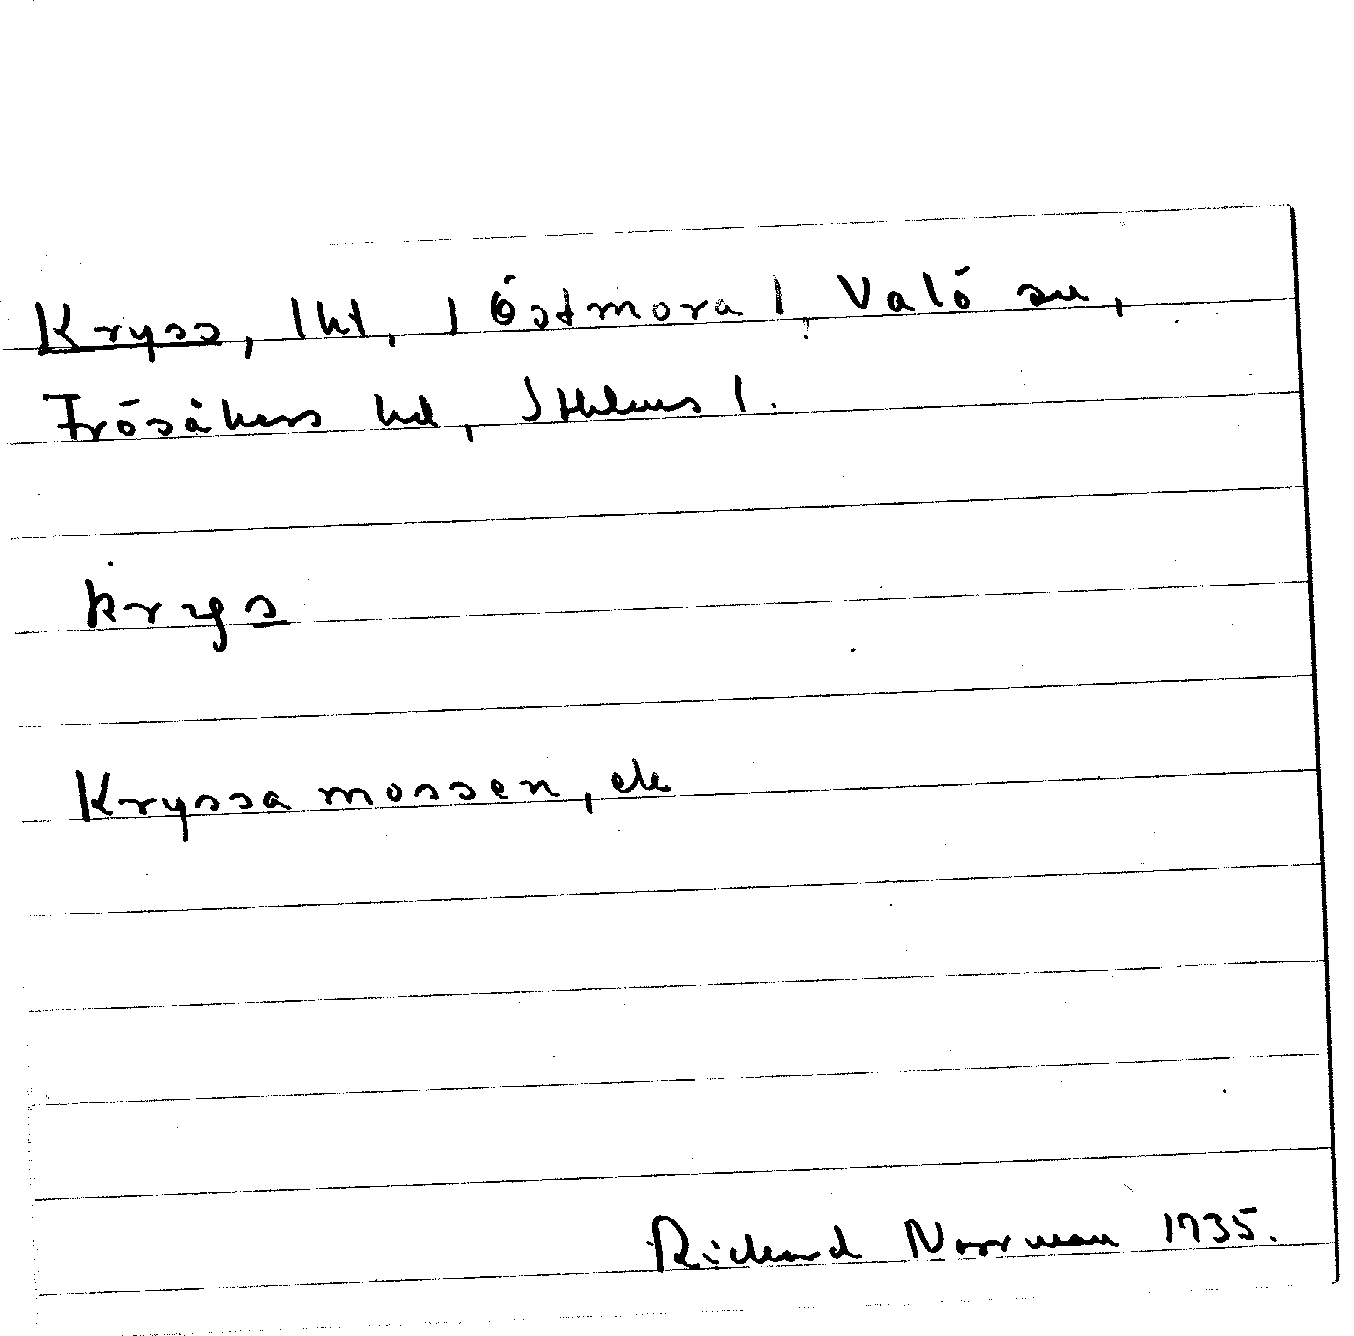 Kryss, lht, i Östmora l, Valö sn,
Frösåkers hd, Sthlms l.
krys
Kryssa mossen, ek
Richard Norrman 1935.